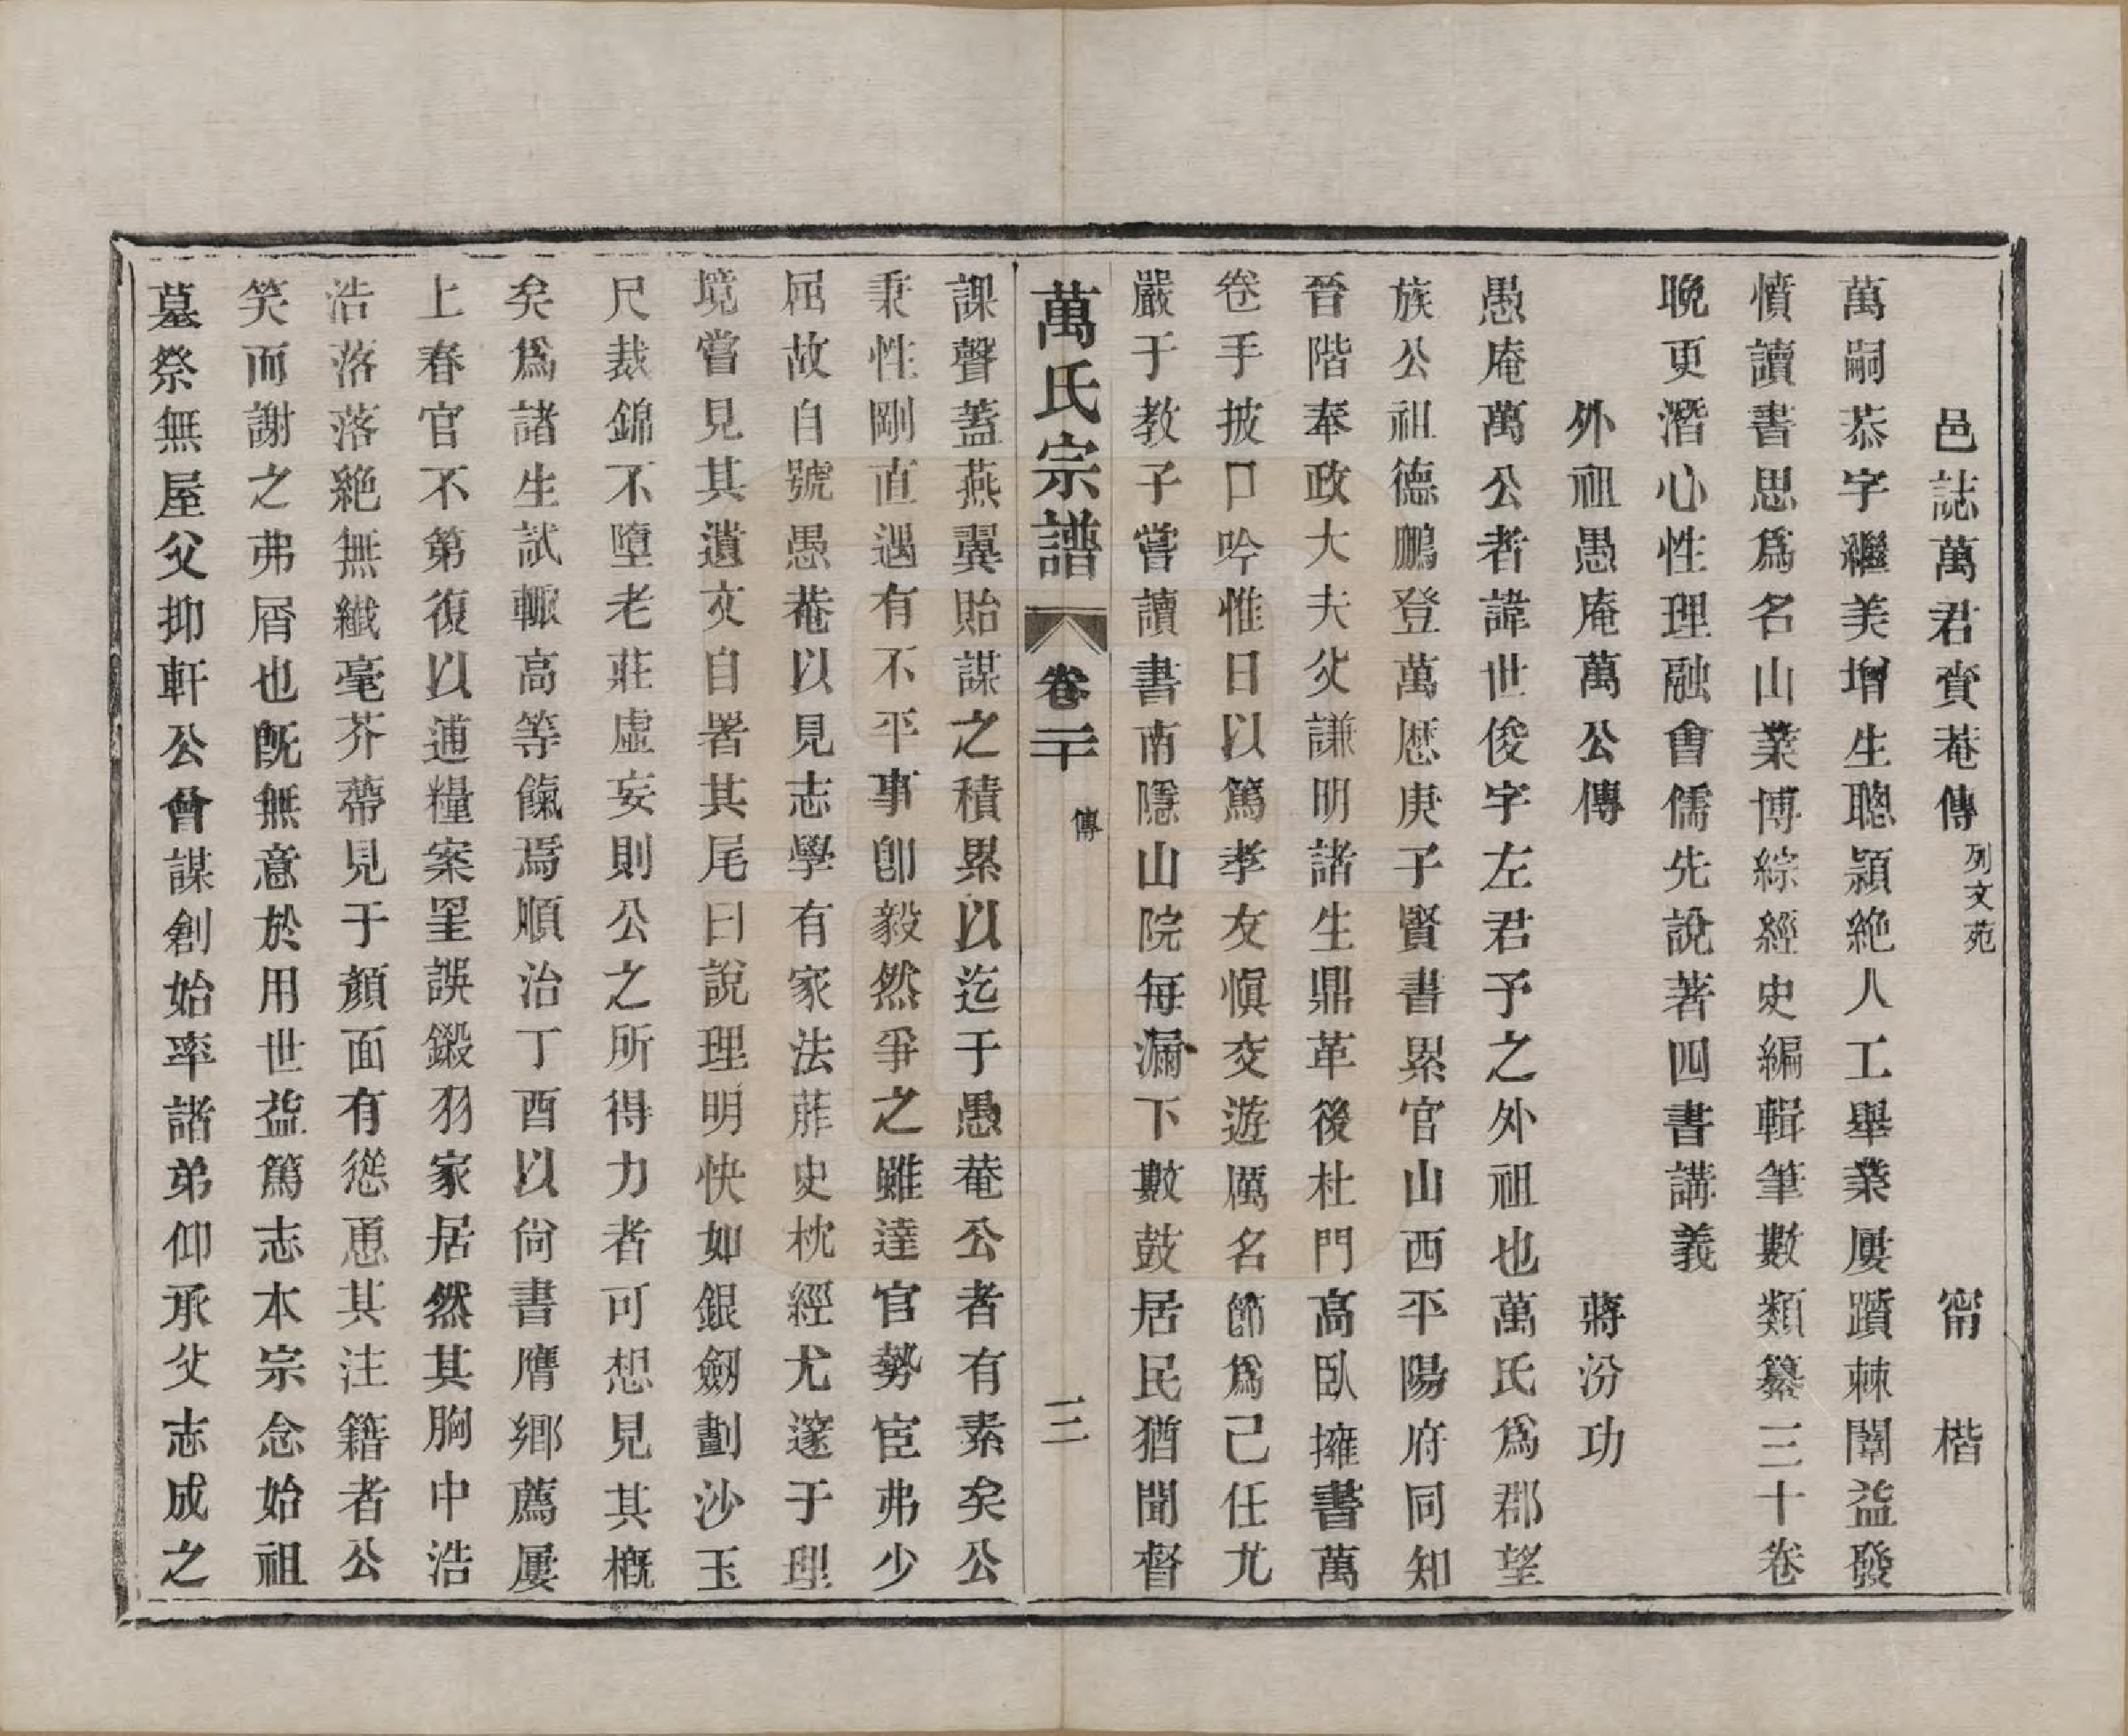 邑誌萬君賚菴傳 列文苑 甯楷
萬嗣恭字繼美增生聰穎絶人工舉業屢躓棘闈益發
憤讀書思爲名山業博綜經史編輯筆數類纂三十卷
晩更潛心性理融會儒先說著四書講義
外祖愚庵萬公傳 蔣汾功
愚庵萬公者諱世俊字左君予之外祖也萬氏爲郡望
族公祖德鵬登萬厯庚子賢書累官山西平陽府同知
晉階奉政大夫父謙明諸生鼎革後杜門高臥擁書萬
卷手披口吟惟日以篤孝友愼交遊厲名節爲己任尤
嚴于教子嘗讀書南隱山院每漏下數鼓居民猶聞督
萬氏宗譜 卷二十 傳 三
課聲蓋燕翼貽謀之積累以迄于愚菴公者有素矣公
秉性剛直遇有不平事卽毅然爭之雖達官勢宦弗少
屈故自號愚菴以見志學有家法葄史枕經尤邃于理
境嘗見其遺文自署其尾曰說理明快如銀劒劃沙玉
尺裁錦不墮老莊虛妄則公之所得力者可想見其概
矣爲諸生試輒高等餼焉順治丁酉以尙書膺鄉薦屢
上春官不第復以逋糧案罣誤鎩羽家居然其胸中浩
浩落落絶無纖毫芥蔕見于顏面有慫恿其注籍者公
笑而謝之弗屑也旣無意於用世益篤志本宗念始祖
墓祭無屋父抑軒公曾謀創始率諸弟仰承父志成之